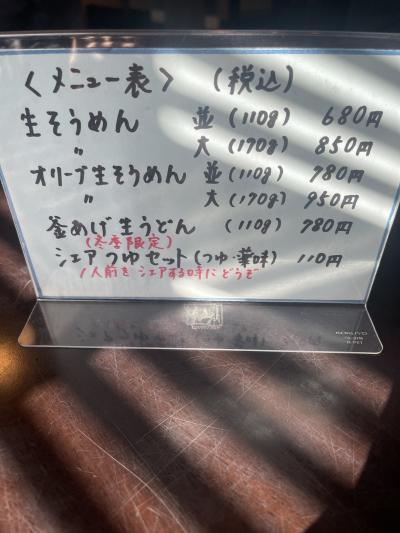 〈メニュー表〉 (税込)
生そうめん 並(110g) 680円
〃 大(170g) 850円
オリーブ生そうめん 並(110g) 780円
〃 大(170g) 950円
釜あげ生うどん (110g) 780円
(冬季限定)
シェアつゆセット(つゆ・薬味) 110円
1人前をシェアする時にどうぞ
KOKUYO